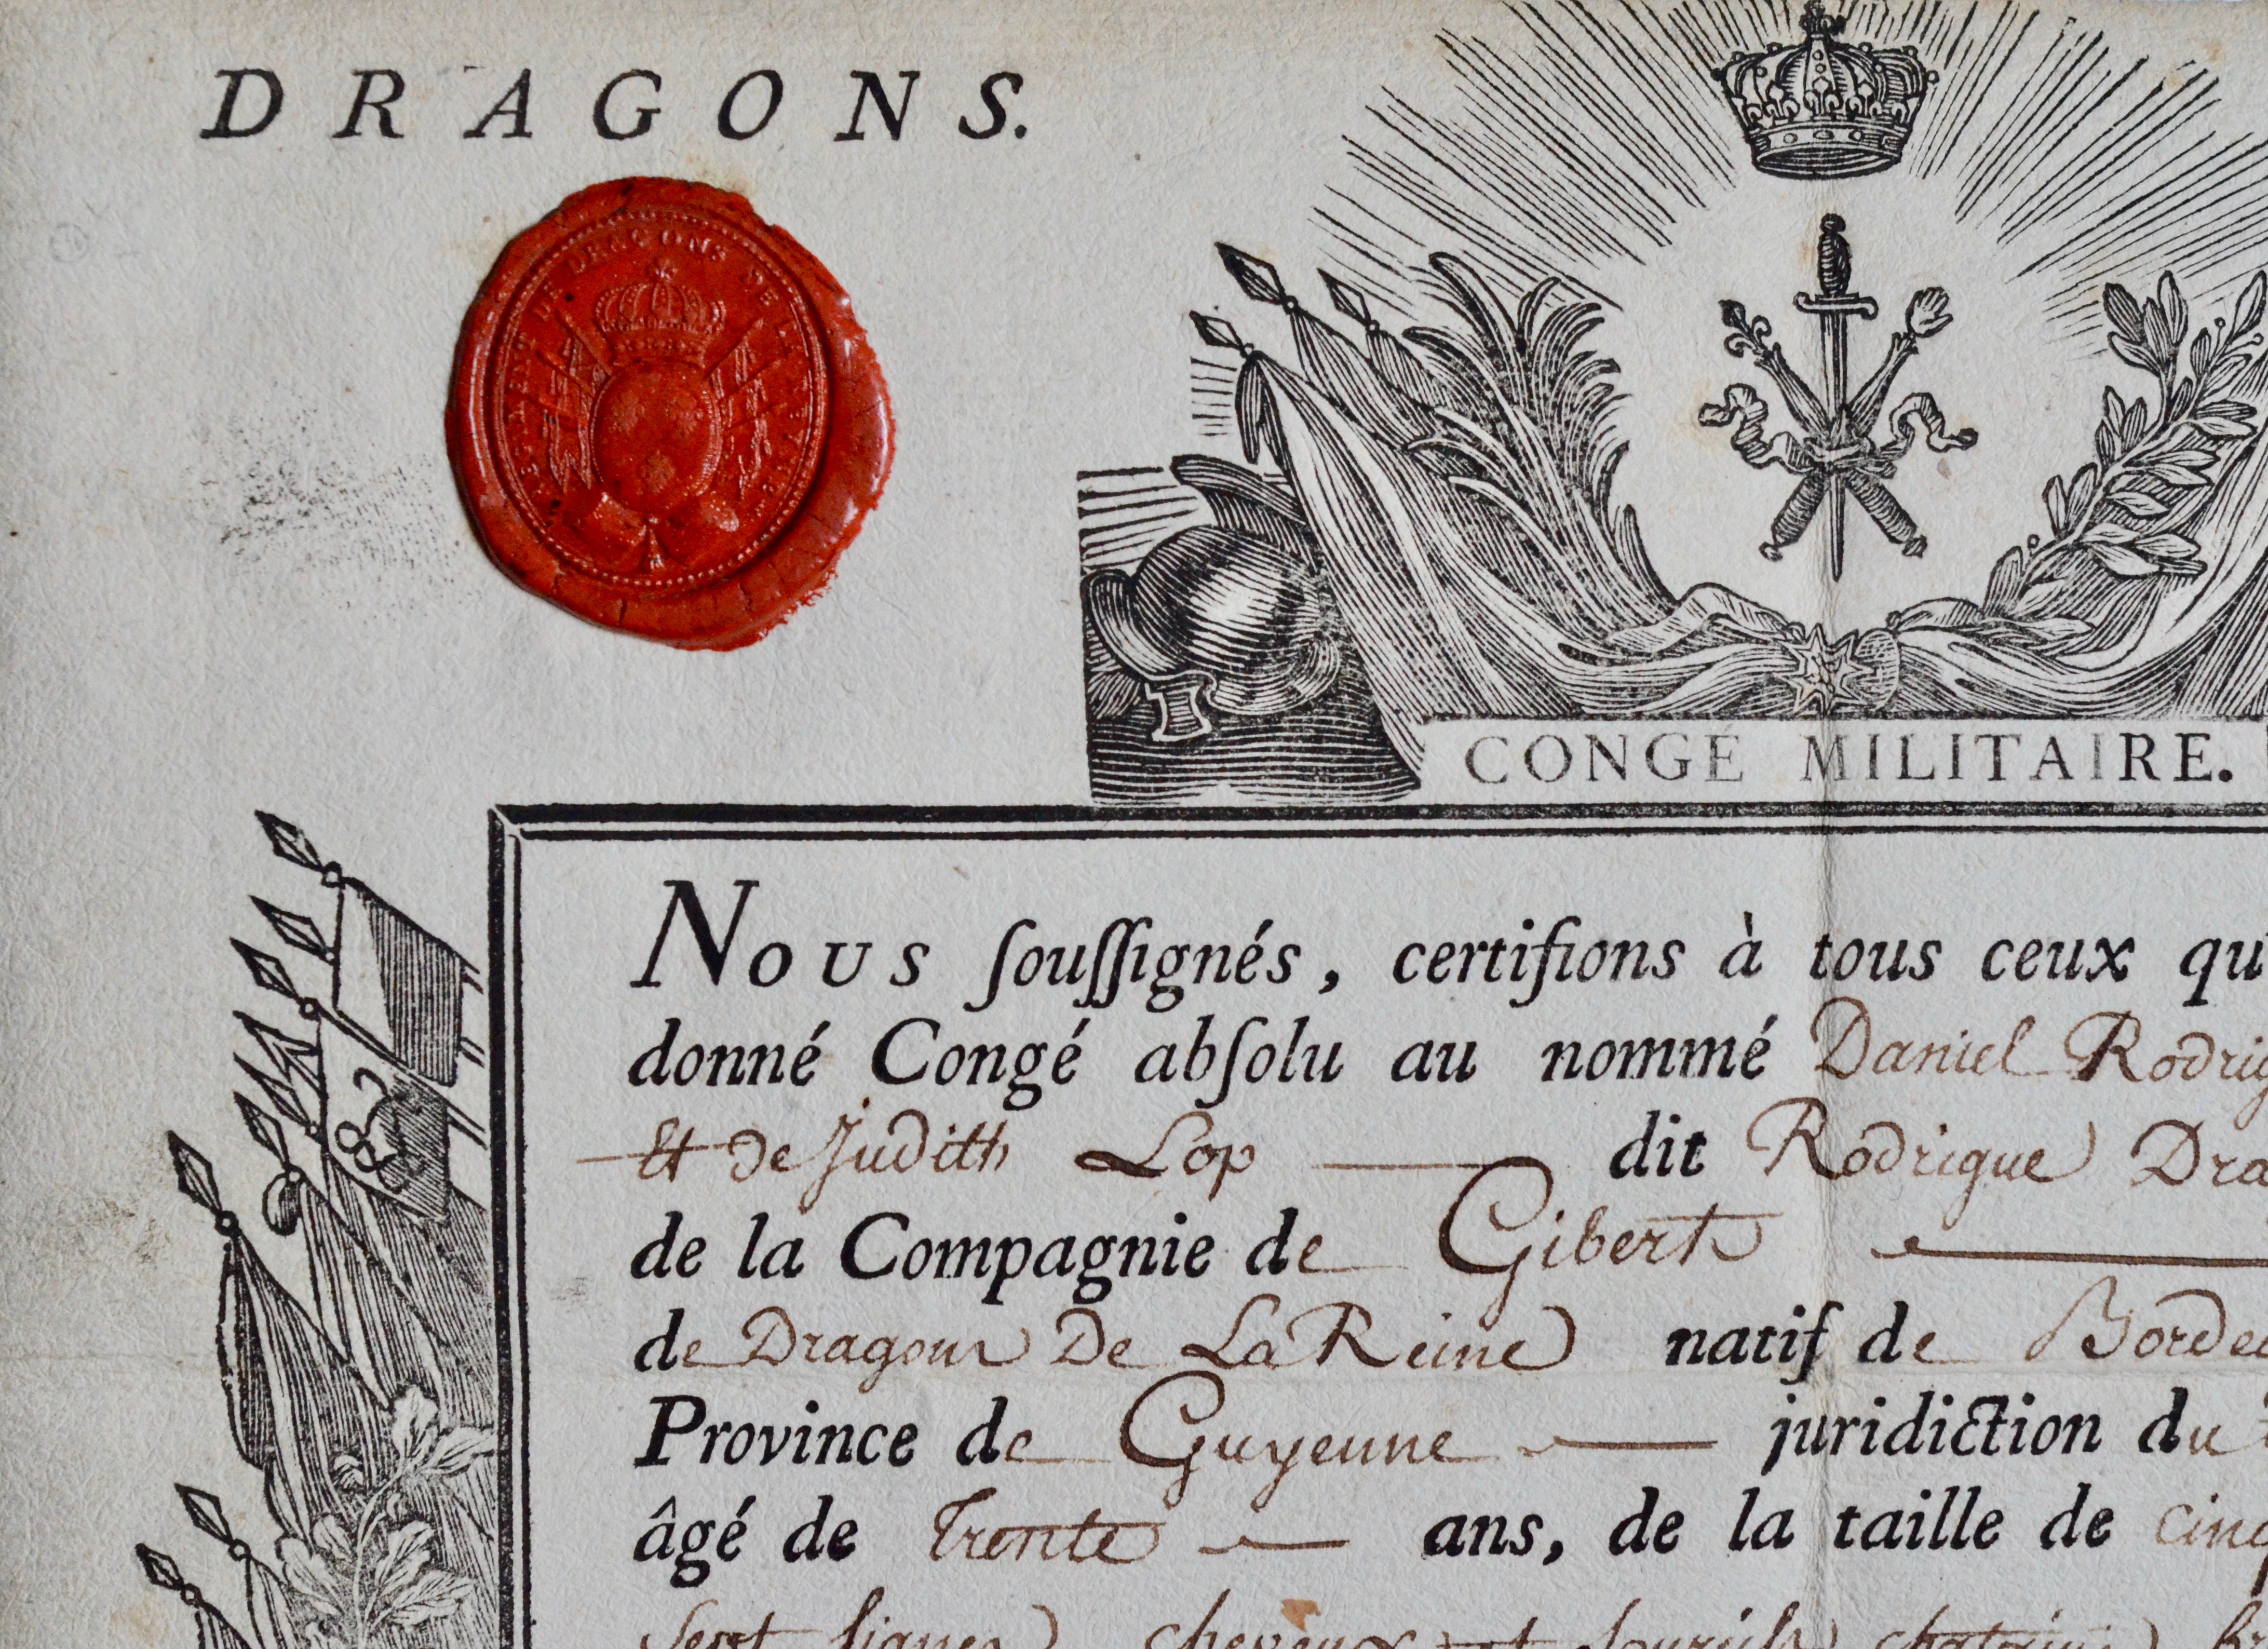 DRAGONS.
REGIMENT DE DRAGONS DE LA REINE
CONGÉ MILITAIRE.
Nous souſſignés, certifions à tous ceux qu
donné Congé abſolu au nommé Daniel Rodrig
Et de Judith Lop dit Rodrigue Dra
de la Compagnie de Gibert
de Dragons De La Reine natif de Bordea
Province de Guyenne juridiction du
âgé de Trente ans, de la taille de cinq
Sept lignes cheveux et sourcils chatains